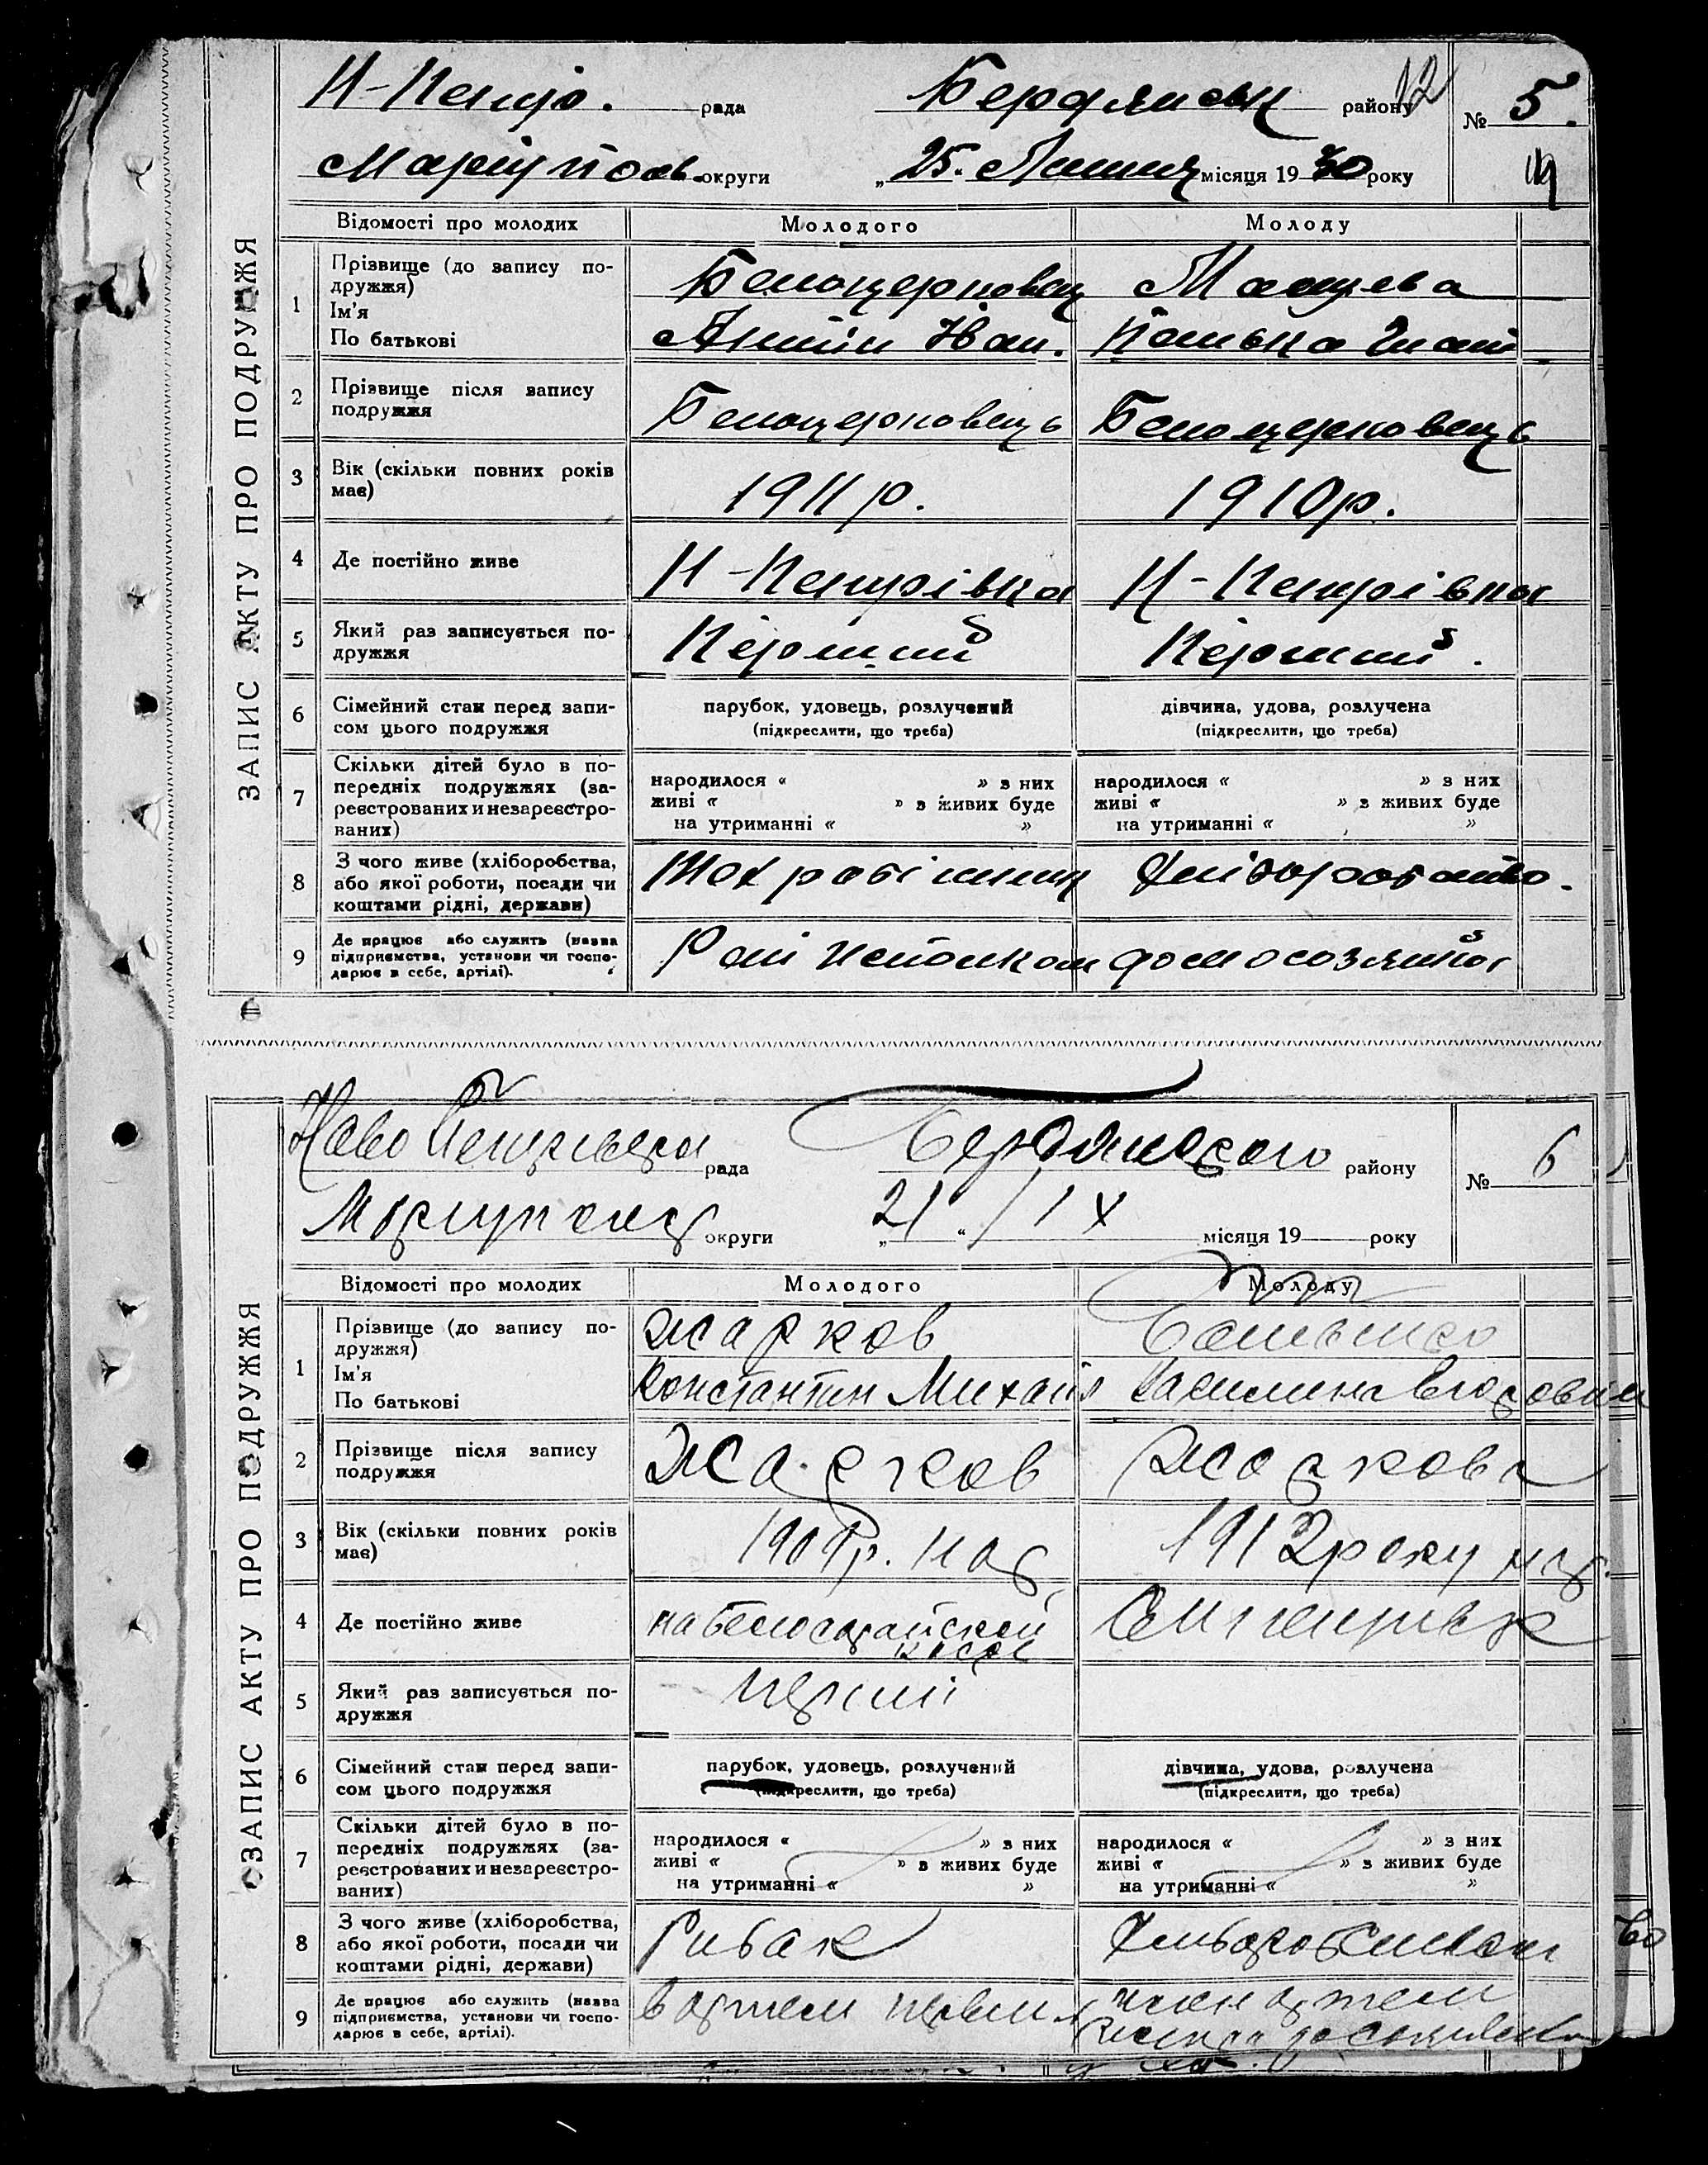 Н-Петро. рада Бердянськ району 12 № 5.
Маріуполь. округи „25. Липня місяця 1930 року
ЗАПИС АКТУ ПРО ПОДРУЖЖЯ
Відомості про молодих Молодого Молоду
1 Прізвище (до запису по-
дружжя)
Ім'я
По батькові
Белоцерковец
Антін Іван.
2 Прізвище після запису
подружжя
Белоцерковець Белоцерковець
3 Вік (скільки повних років
має)
1911 р. 1910 р.
4 Де постійно живе
Н-Петрівка Н-Петрівка
5 Який раз записується по-
дружжя
Перший Перший.
6 Сімейний стан перед запи-
сом цього подружжя
парубок, удовець, розлучений
(підкреслити, що треба)
дівчина, удова, розлучена
(підкреслити, що треба)
7 Скільки дітей було в по-
передніх подружжях (за-
реєстрованих и незареєстро-
ваних)
народилося « » з них
живі « » з живих буде
на утриманні « »
народилося « » з них
живі « » з живих буде
на утриманні « »
8 З чого живе (хліборобства,
або якої роботи, посади чи
коштами рідні, держави)
Тех робітник
9 Де працює або служить (назва
підприємства, установи чи госпо-
дарює в себе, артілі).
домохозяйка
Ново Петрівська рада Бердянского району № 6
округи „21“ / IX місяця 19 року
ЗАПИС АКТУ ПРО ПОДРУЖЖЯ
Відомості про молодих Молодого Молоду
1 Прізвище (до запису по-
дружжя)
Ім'я
По батькові
Жарков
Константин Михайл
2 Прізвище після запису
подружжя
Жарков Жаркова
3 Вік (скільки повних років
має)
1912 року
4 Де постійно живе
на Белосарайской
косе
5 Який раз записується по-
дружжя
перший
6 Сімейний стан перед запи-
сом цього подружжя
парубок, удовець, розлучений
(підкреслити, що треба)
дівчина, удова, розлучена
(підкреслити, що треба)
7 Скільки дітей було в по-
передніх подружжях (за-
реєстрованих и незареєстро-
ваних)
народилося « » з них
живі « » з живих буде
на утриманні « »
народилося « » з них
живі « » з живих буде
на утриманні « »
8 З чого живе (хліборобства,
або якої роботи, посади чи
коштами рідні, держави)
Рибак
9 Де працює або служить (назва
підприємства, установи чи госпо-
дарює в себе, артілі).
в артели член артели